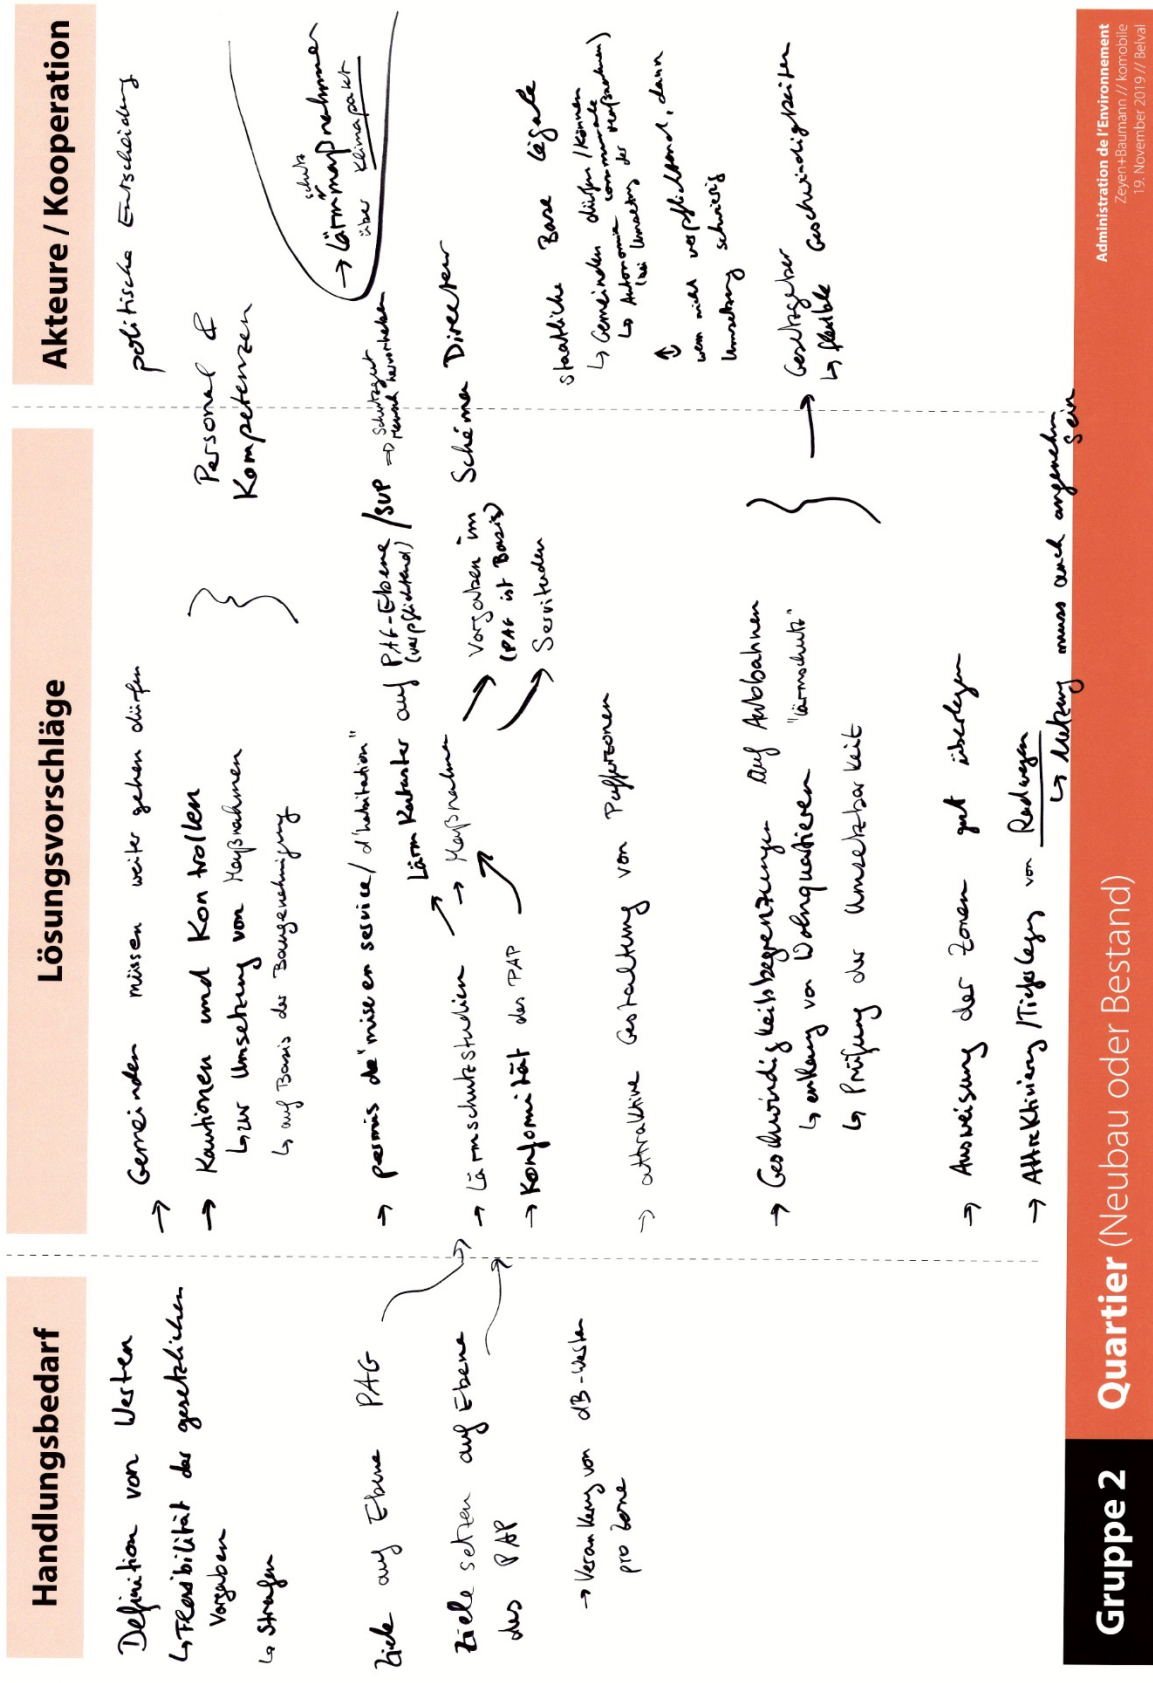 Handlungsbedarf
Definition von Werten
↳ Flexibilität der gesetzlichen
Vorgaben
↳ Strafen
Ziele auf Ebene PAG
Ziele setzen auf Ebene
des PAP
→ Verankerung von dB-Werten
pro Zone
Lösungsvorschläge
→ Gemeinden müssen weiter gehen dürfen
→ Kautionen und Kontrollen
↳ zur Umsetzung von Maßnahmen
↳ auf Basis der Baugenehmigung
→ permis de "mise en service / d'habitation"
Lärmkataster auf PAG-Ebene / SUP → Schutzgut
(verpflichtend)
Mensch hervorheben
→ Lärmschutzstudien → Maßnahmen
→ Vorgaben im Schéma Directeur
(PAG ist Basis)
→ Servituden
→ Konformität des PAP
→ attraktive Gestaltung von Pufferzonen
→ Geschwindigkeitsbegrenzungen auf Autobahnen
↳ entlang von Wohnquartieren "Lärmschutz"
↳ Prüfung der Umsetzbarkeit
→ Ausweisung der Zonen gut überlegen
→ Attraktivierung / Tieferlegung von Radwegen
↳ Nutzung muss auch angenehm
sein
Akteure / Kooperation
politische Entscheidung
Personal &
Kompetenzen
schutz
→ Lärmmaßnahmen
über Klimapakt
staatliche Base légale
↳ Gemeinden dürfen / können
↳ Autonomie communale
(bei Umsetzung der Maßnahmen)
wenn nicht verpflichtend, dann
Umsetzung schwierig
→ Gesetzgeber
↳ flexible Geschwindigkeiten
Gruppe 2
Quartier (Neubau oder Bestand)
Administration de l'Environnement
Zeyen+Baumann // komobile
19. November 2019 // Belval